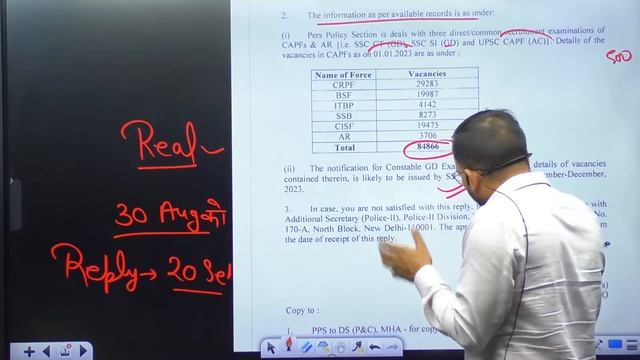 2. The information as per available records is as under:
(i) Pers Policy Section is deals with three direct/common recruitment examinations of
CAPFs & AR {i.e. SSC CT (GD), SSC SI (GD) and UPSC CAPF (AC)}. Details of the
vacancies in CAPFs as on 01.01.2023 are as under :
500
Name of Force Vacancies
CRPF 29283
BSF 19987
ITBP 4142
SSB 8273
CISF 19475
AR 3706
Total 84866
Real
30 Aug को
Reply → 20 Se
(ii) The notification for Constable GD Exa details of vacancies
contained therein, is likely to be issued by SS mber-December,
2023.
3. In case, you are not satisfied with this reply, with
Additional Secretary (Police-II), Police-II Division, No.
170-A, North Block, New Delhi-110001. The app m
the date of receipt of this reply.
Copy to :
1. PPS to DS (P&C), MHA - for copy